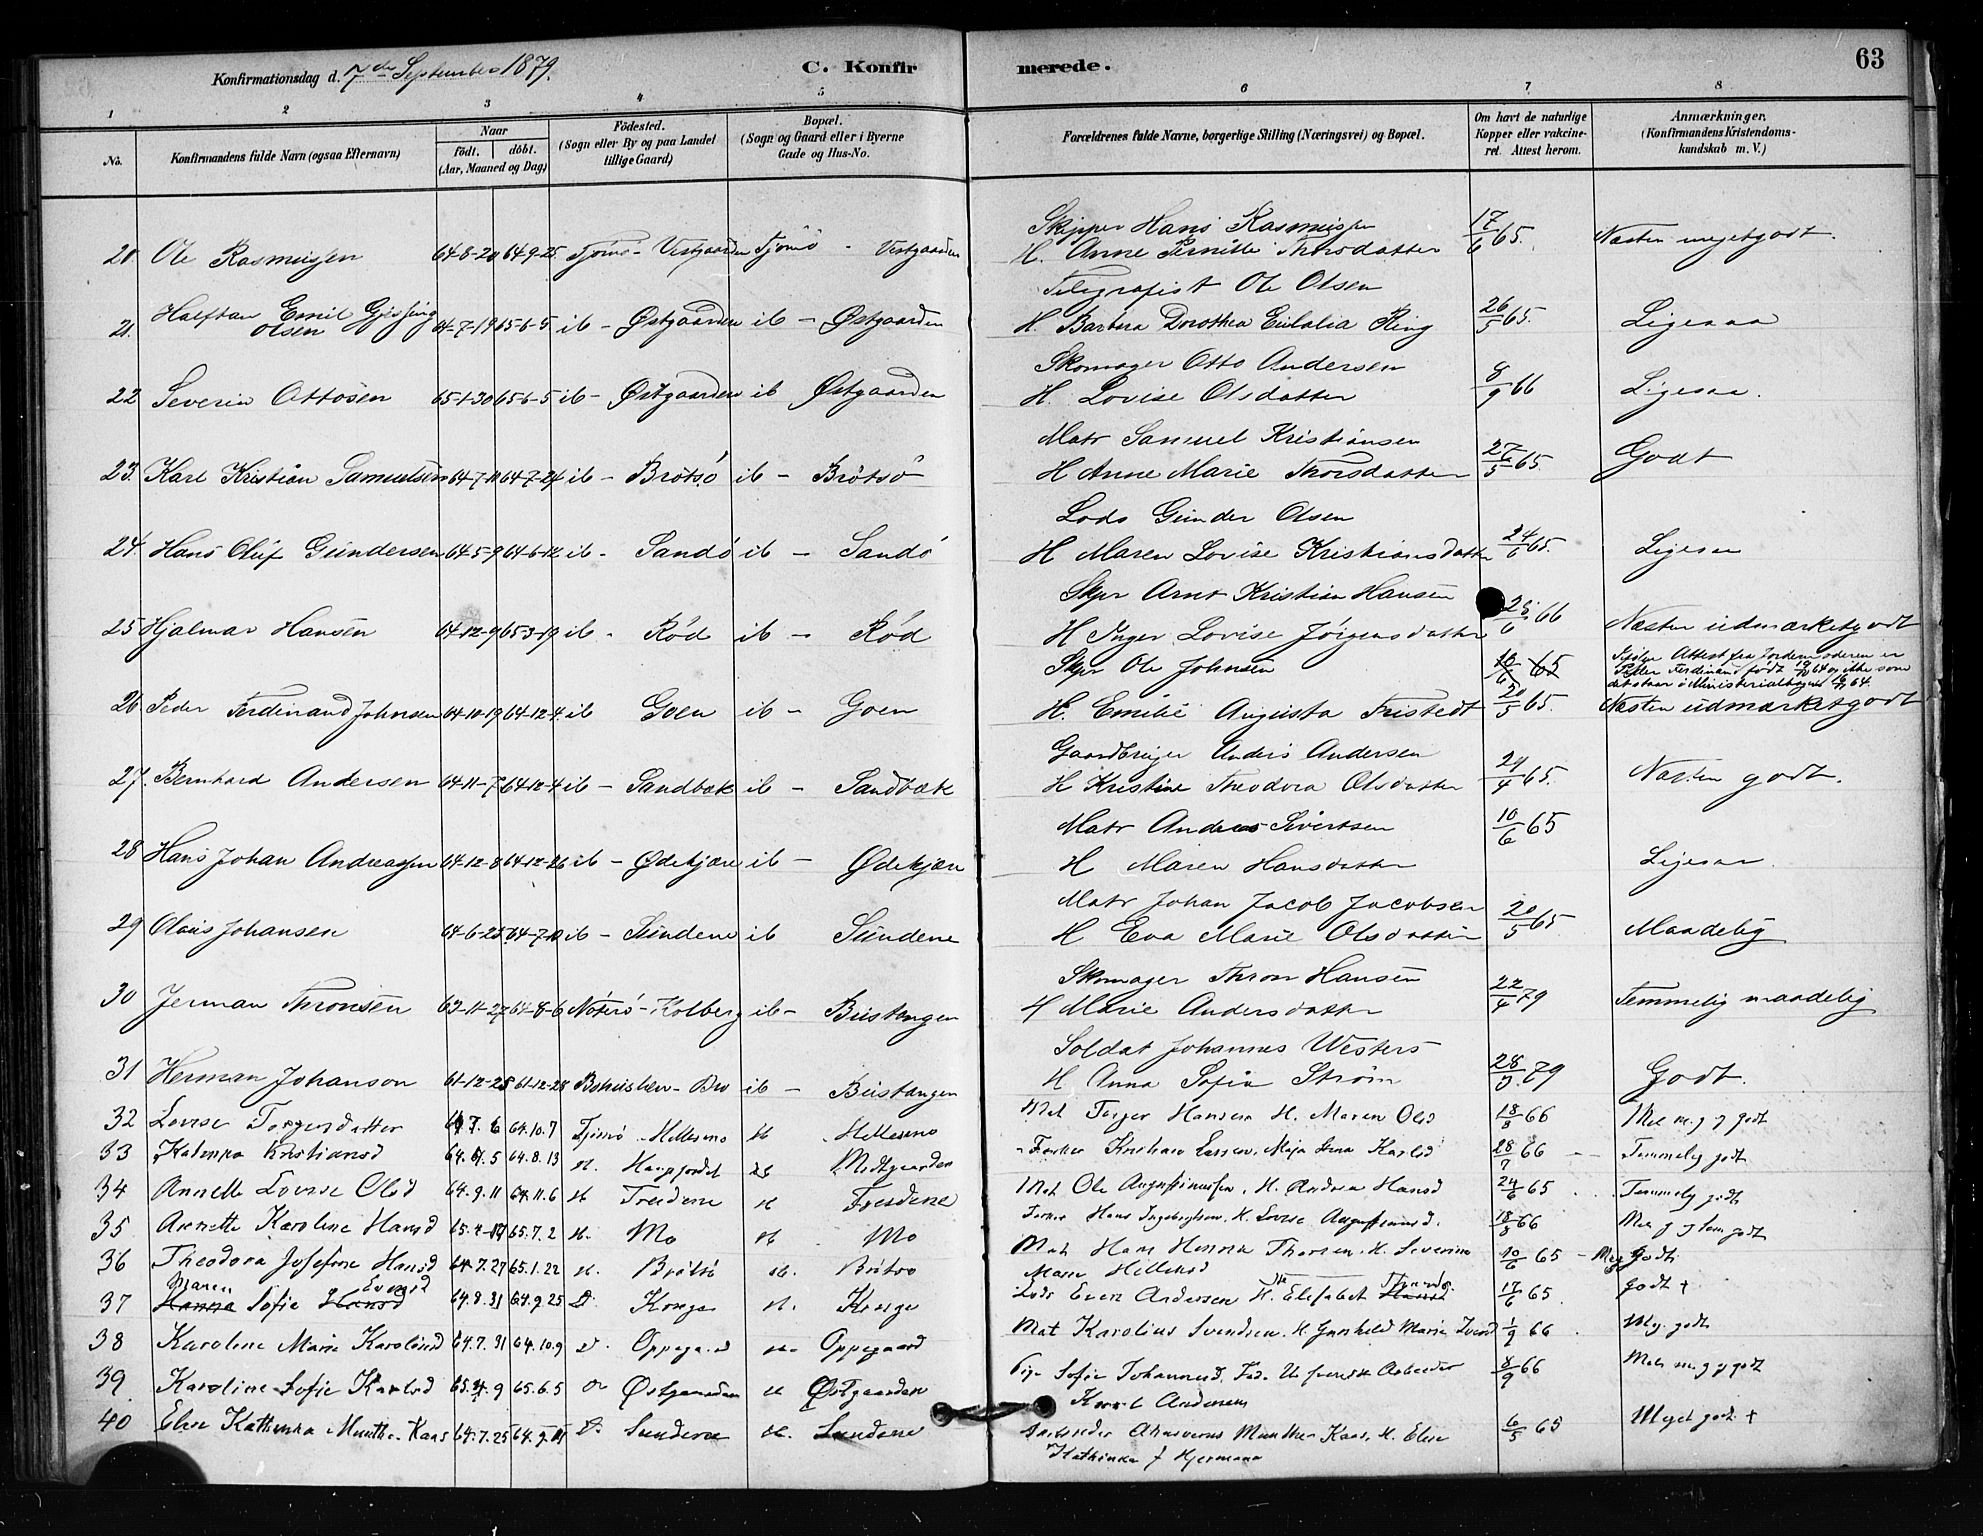 63
Konfirmationsdag d. 7de September 1879.
C. Konfirmerede.
1 2 3 4 5 6 7 8
No. Konfirmandens fulde Navn (ogsaa Efternavn)
Naar født. døbt. (Aar, Maaned og Dag)
Fødested. (Sogn eller By og paa Landet tillige Gaard)
Bopæl. (Sogn og Gaard eller i Byerne Gade og Hus-No.
Forældrenes fulde Navne, borgerlige Stilling (Næringsvei) og Bopæl.
Om havt de naturlige Kopper eller vakcineret. Attest herom.
Anmærkninger. (Konfirmandens Kristendomskundskab m. V.)
Skipper Hans Rasmussen
20 Ole Rasmussen 64-8-20 64-9-25 Tjømø - Vestgaarden Tjømø - Vestgaarden H. Anne Pernille Thorsdatter 17/6 65. Næsten megetgodt.
Telegrafist Ole Olsen
21. Halfdan Emil Gjessing Olsen 64-7-19 65-6-5 ib - Østgaarden ib - Østgaarden H. Barbara Dorothea Eulalia Ring 26/5 65. Ligesaa
Skomager Otto Andersen
22 Severin Ottosen 65-1-30 65-6-5 ib - Østgaarden ib Østgaarden H. Lovise Olsdatter 8/9 66 Ligesaa.
Matr Samuel Kristiansen
23. Karl Kristian Samuelsen 64-7-11 64-7-24 ib - Brøtsø ib - Brøtsø H Anne Marie Thorsdatter 27/5 65. Godt
Lods Gunder Olsen
24. Hans Oluf Gundersen 64-5-9 64-6-12 ib - Sandø ib - Sandø H Maren Lovise Kristiansdatter 24/6 65. Ligesaa
Skpr Arnt Kristian Hansen
25 Hjalmar Hansen 64-12-9 65-3-19 ib - Rød ib - Rød H Inger Lovise Jørgensdatter 25/6 66 Næsten udmærketgodt
Skpr Ole Johnsen 10/6 65 Ifølge Attest fra Jordemoderen er
Peder Ferdinand født 19/10 64 og ikke som
det staar i Ministerialbogen 64.
26 Peder Ferdinand Johnsen 64-10-19 64-12-4. ib Goen ib - Goen H. Emilie Augusta Fristedt 20/5 65. Næsten udmærketgodt
Gaardbruger Anders Andersen
27. Bernhard Andersen 64-11-7 64-12-4 ib - Sandbæk ib - Sandbæk H Kristine Theodora Olsdatter 29/4 65. Næsten godt.
Matr Andreas Sivertsen 10/6 65
28 Hans Johan Andreassen 64-12-8 64-12-26 ib - Ødekjære ib - Ødekjære H Maren Hansdatter Ligesaa
Matr Johan Jacob Jacobsen
29 Olaus Johansen 64-6-25 64-7-10 ib - Sundene ib Sundene H Eva Marie Olsdatter 20/5 65 Maadelig
Skomager Thron Hansen
30 Jerman Thronsen 63-11-27 64-8-6 Nøterø - Kolberg ib - Bustangen H Marie Andersdatter 22/4 79 Temmelig maadelig
Soldat Johannes Westers
31 Herman Johanson 61-12-25 61-12-28 Bohuslen - Bro ib - Bustangen H Anna Sofia Strøm 28/3 79 Godt.
32 Lovise Torgersdatter 64.7.6 64.10.7 Tjømø - Hellesmo ib - Hellesmo Mat Torger Hansen H. Maren Olsd 18/8 66 Mel m.g og godt
33 Katinka Kristiansd 64.7.5 64.8.13 ib. ib Midtgaarden 28/7 66 Temmelig godt
34 Annette Lovise Olsd 64.9.11 64.11.6 ib Treidene ib Treidene Mat Ole Augustinussen. H. Andrea Hansd 24/6 65 Temmelig godt
35 Annette Karoline Hansd 65.7.2 ib. Mo ib. Mo Hans Ingebrigtsen. H. Lovise Augustinusd. 18/8 66
36 Theodora Josefine Hansd 64.7.27 65.1.22 ib. Brøtsø ib. Brøtsø Mat Hans Henrik Thorsen. H. Severine
Marie Hellesd 10/6 65 - Meg godt
37 Maren Hanna Sofie Evensd Hansd 64.8.31 64.9.25 Konge ib. Konge Lods Even Andersen H. Elisabet Thronsd. Hansd 17/6 65. godt +
38 Karoline Marie Karolinsd 64.7.31 64.10.9 Oppegaard Oppegaard Mat Karolius Svendsen. H. Gunhild Marie Iversd 1/9 66 Meg. godt
39 Karoline Sofie Karlsd 65.4.9 65.6.5 Østgaarden ib Østgaarden Pige Sofie Johannesd. Fad. Arbeider
Karl Andersen 8/9 66 Mel m.g og godt
40 Elise Kathinka Munthe-Kaas 64.7.25 Sundene ib. Sundene Ahasverus Munthe-Kaas, H. Elise
Kathinka f Hjermann 6/5 65 Meget godt. +